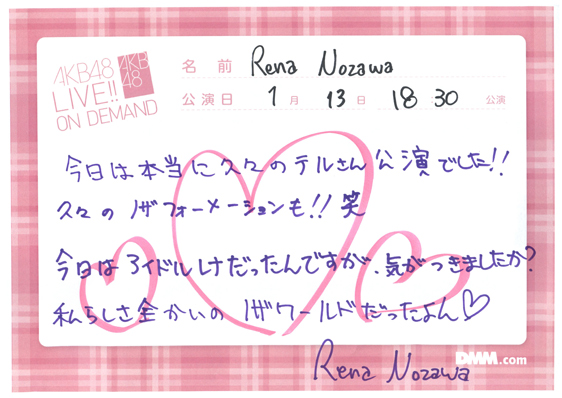 AKB48
LIVE!!
ON DEMAND
AKB
48
名前 Rena Nozawa
公演日 1月 13日 18:30 公演
今日は本当に久々のテルさん公演でした!!
久々のノザフォーメーションも!! 笑
今日はアイドルレナだったんですが、気がつきましたか?
私らしさ全かいのノザワールドだったよん♡
DMM.com
Rena Nozawa